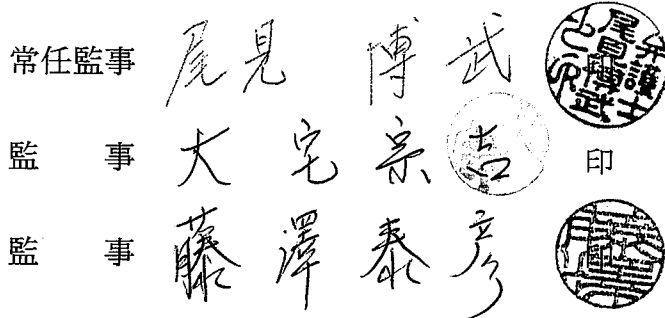 常任監事 尾見 博武 弁護士尾見博武之印
監 事 大宅宗吉 印
監 事 藤澤泰彦